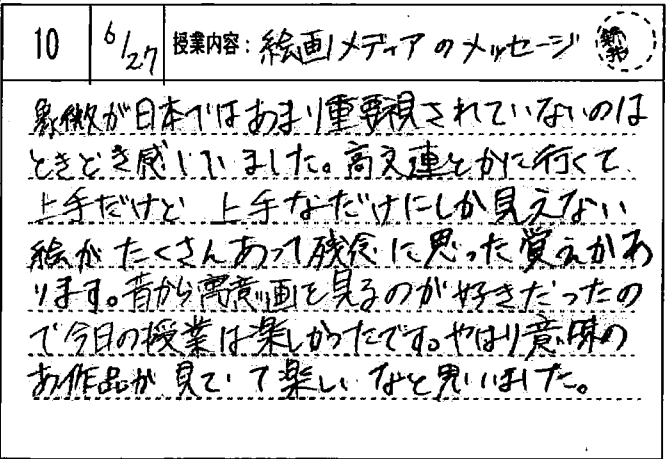 10 6/27 授業内容: 絵画メディアのメッセージ
象徴が日本ではあまり重要視されていないのは
ときどき感じていました。高文連とかに行くて
上手だけど 上手なだけにしか見えない
絵がたくさんあって残念に思った覚えがあ
ります。昔から寓意画を見るのが好きだったの
で今日の授業は楽しかったです。やはり意味の
ある作品が見ていて楽しいなと思いました。